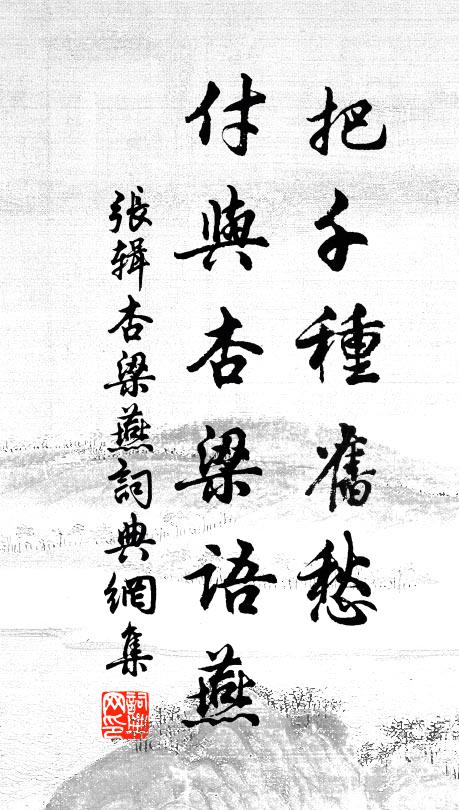 把千種舊愁
付與杏梁語燕
張輯杏梁燕詞典網集